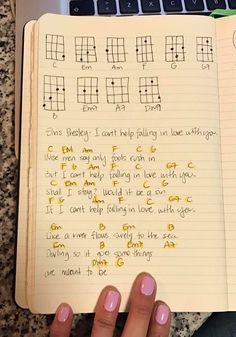 C Em Am F G G7
B Em7 A7 Dm7
Elvis Presley - I can't help falling in love with you
C Em Am F C G
Wise men say only fools rush in
F G Am F C G7 C
But I can't help falling in love with you
C Em Am F C G
Shall I stay? Would it be a sin
F G Am F C G7 C
If I can't help falling in love with you
Em B Em B
Like a river flows surely to the sea
Em B Em7 A7
Darling so it goes some things
Dm7 G
are meant to be